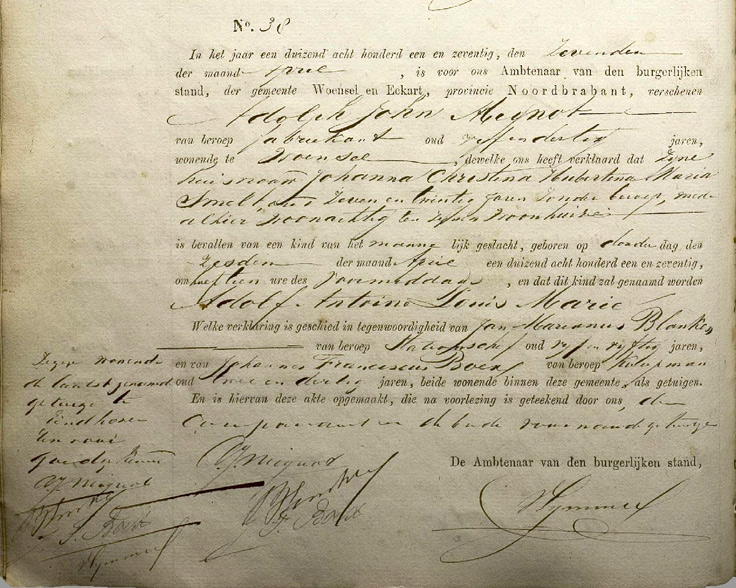 No. 38
In het jaar een duizend acht honderd een en zeventig, den Zevenden
der maand April, is voor ons Ambtenaar van den burgerlijken
stand, der gemeente Woensel en Eckart, provincie Noordbrabant, verschenen
Adolph John Mignot
van beroep fabriekant oud vijf en dertig jaren,
wonende te Woensel, dewelke ons heeft verklaard dat zijne
huisvrouw Johanna Christina Hubertina Maria
Smelt oud Zeven en twintig jaren Zonder beroep, mede
alhier woonachtig ten zijnen woonhuize
is bevallen van een kind van het manne lijk geslacht, geboren op donder dag, den
Zesden der maand April een duizend acht honderd een en zeventig,
om tien ure des voormiddags, en dat dit kind zal genaamd worden
Adolf Antoine Louis Marie
Welke verklaring is geschied in tegenwoordigheid van Jan Marianus Blanken
van beroep oud vijf en vijftig jaren,
en van Johannes Franciscus van beroep Koopman
oud twee en dertig jaren, beide wonende binnen deze gemeente, als getuigen.
En is hiervan deze akte opgemaakt, die na voorlezing is geteekend door ons, den
Comparant en de beide voornoemde getuigen
De Ambtenaar van den burgerlijken stand,
AJ Mignot
wonende
de laatstgenoemd
getuige te
Eindhoven
Goedgekeurd
AJ Mignot